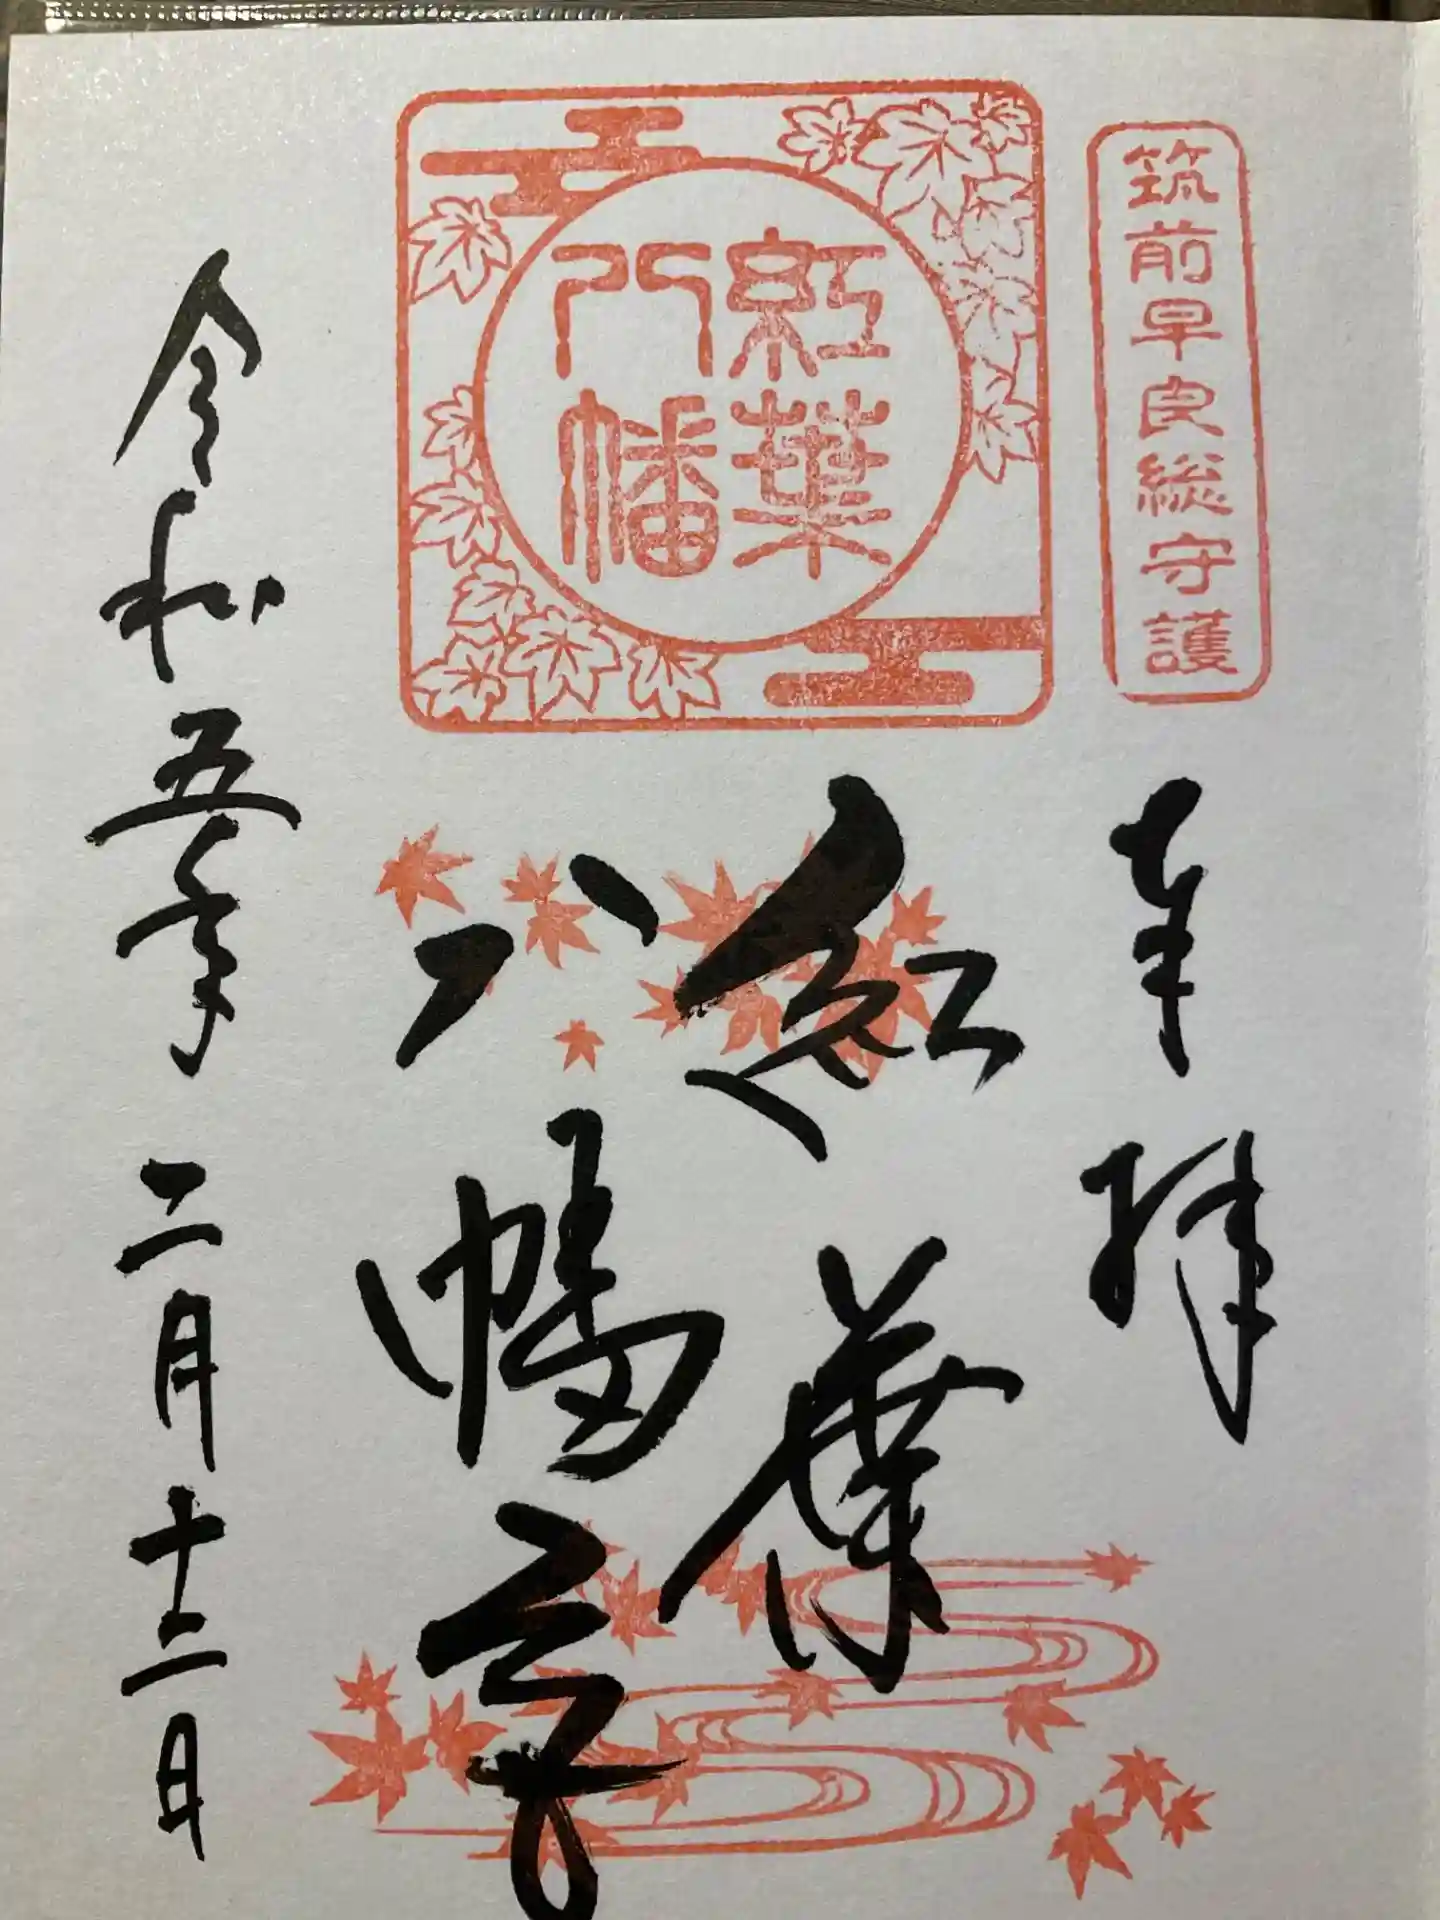 筑前早良総守護
奉拝
紅葉
八幡
紅葉
八幡宮
令和五年二月十二日